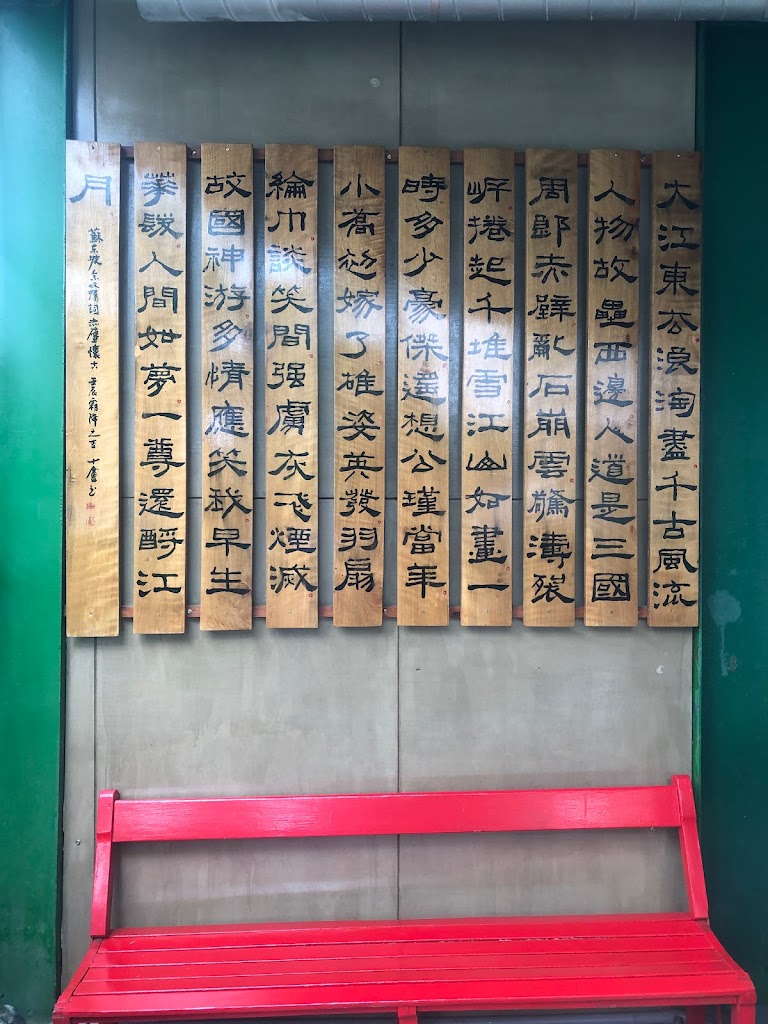 大江東去浪淘盡千古風流
人物故壘西邊人道是三國
周郎赤壁亂石崩雲驚濤裂
岸捲起千堆雪江山如畫一
時多少豪傑遙想公瑾當年
小喬初嫁了雄姿英發羽扇
綸巾談笑間强虜灰飛煙滅
故國神游多情應笑我早生
華髮人間如夢一尊還酹江
月
蘇東坡念奴嬌詞赤壁懷古 霜降之